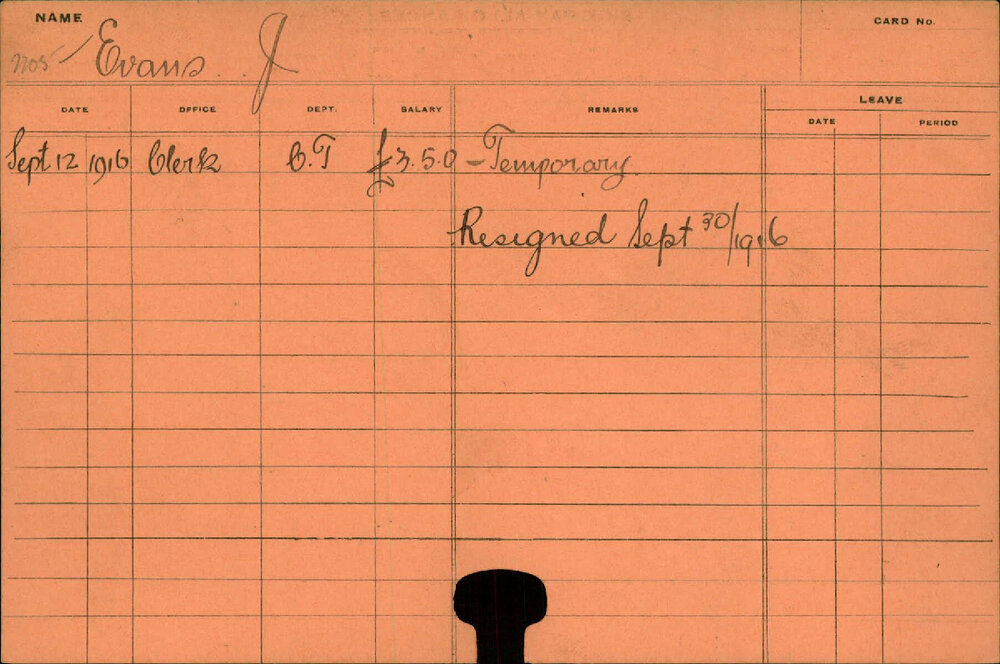 NAME
CARD No.
Evans J
DATE OFFICE DEPT. SALARY REMARKS LEAVE
DATE PERIOD
Sept 12 1916 Clerk C.T £3.5.0 - Temporary.
Resigned Sept 30/1916